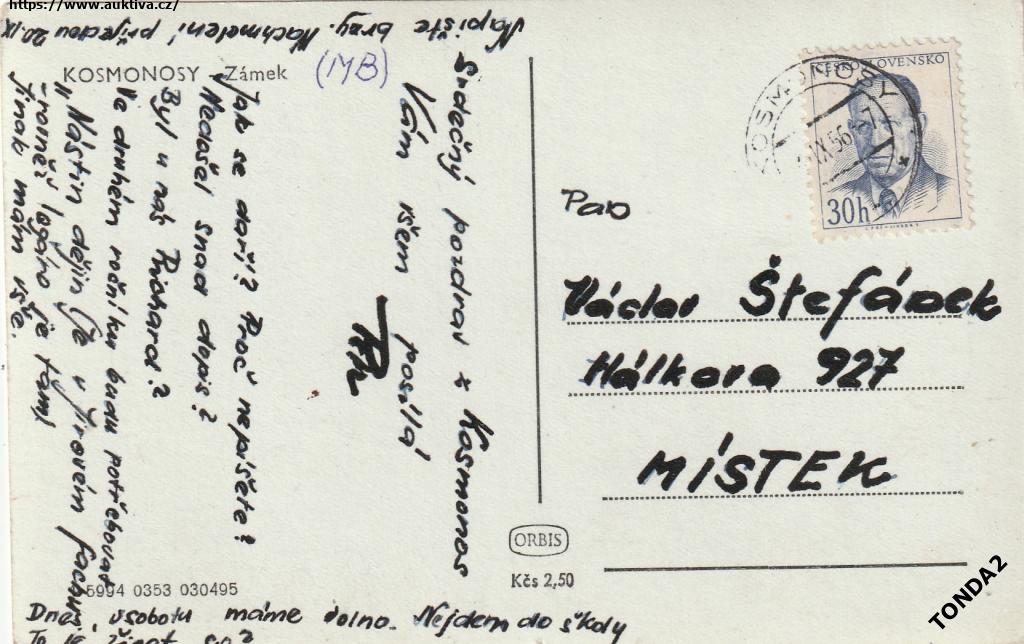 https://www.auktiva.cz/
Napište brzy. Nachmelení přijedou 20.IX
KOSMONOSY – Zámek
(MB)
Srdečný pozdrav z Kosmonos
Vám všem posílá
Jak se daří? Proč nepíšete?
Nedošel snad dopis?
Byl u nás Richard?
Ve druhém ročníku budu potřebovat
"Nástin dějin (je v
logáro je tam)
Jinak mám vše.
Dnes, v sobotu máme volno. Nejdem do školy
To je život co?
5994 0353 030495
ČESKOSLOVENSKO
30h
KOSMONOSY
IX 56
Pan
Václav Štefánek
Hálkova 927
MÍSTEK
ORBIS
Kčs 2,50
TONDA2